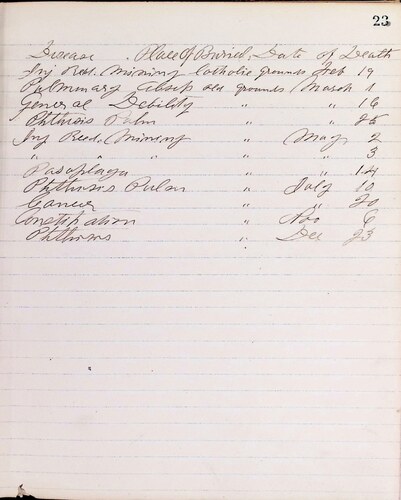 23
Disease. Place Of Buried. Date of Death
Inj Recd. Mining Catholic grounds Feb 19
Pulmonary old grounds March 1
General Debility " " 16
Phthisis Pulm " " 25
Inj Recd. Mining " May 2
" " " " " 3
" " 14
Phthisis Pulm " July 10
Cancer " " 20
Constipation " Nov 6
Phthisis " Dec 23